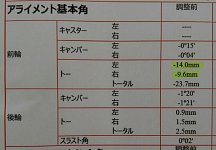 アライメント基本角 調整前
前輪 キャスター 左 ----
右 ----
キャンバー 左 -0°15'
右 -0°04'
トー 左 -14.0mm
右 -9.6mm
トータル -23.7mm
後輪 キャンバー 左 -1°20'
右 -1°21'
トー 左 0.9mm
右 1.5mm
トータル 2.5mm
スラスト角 0°02'